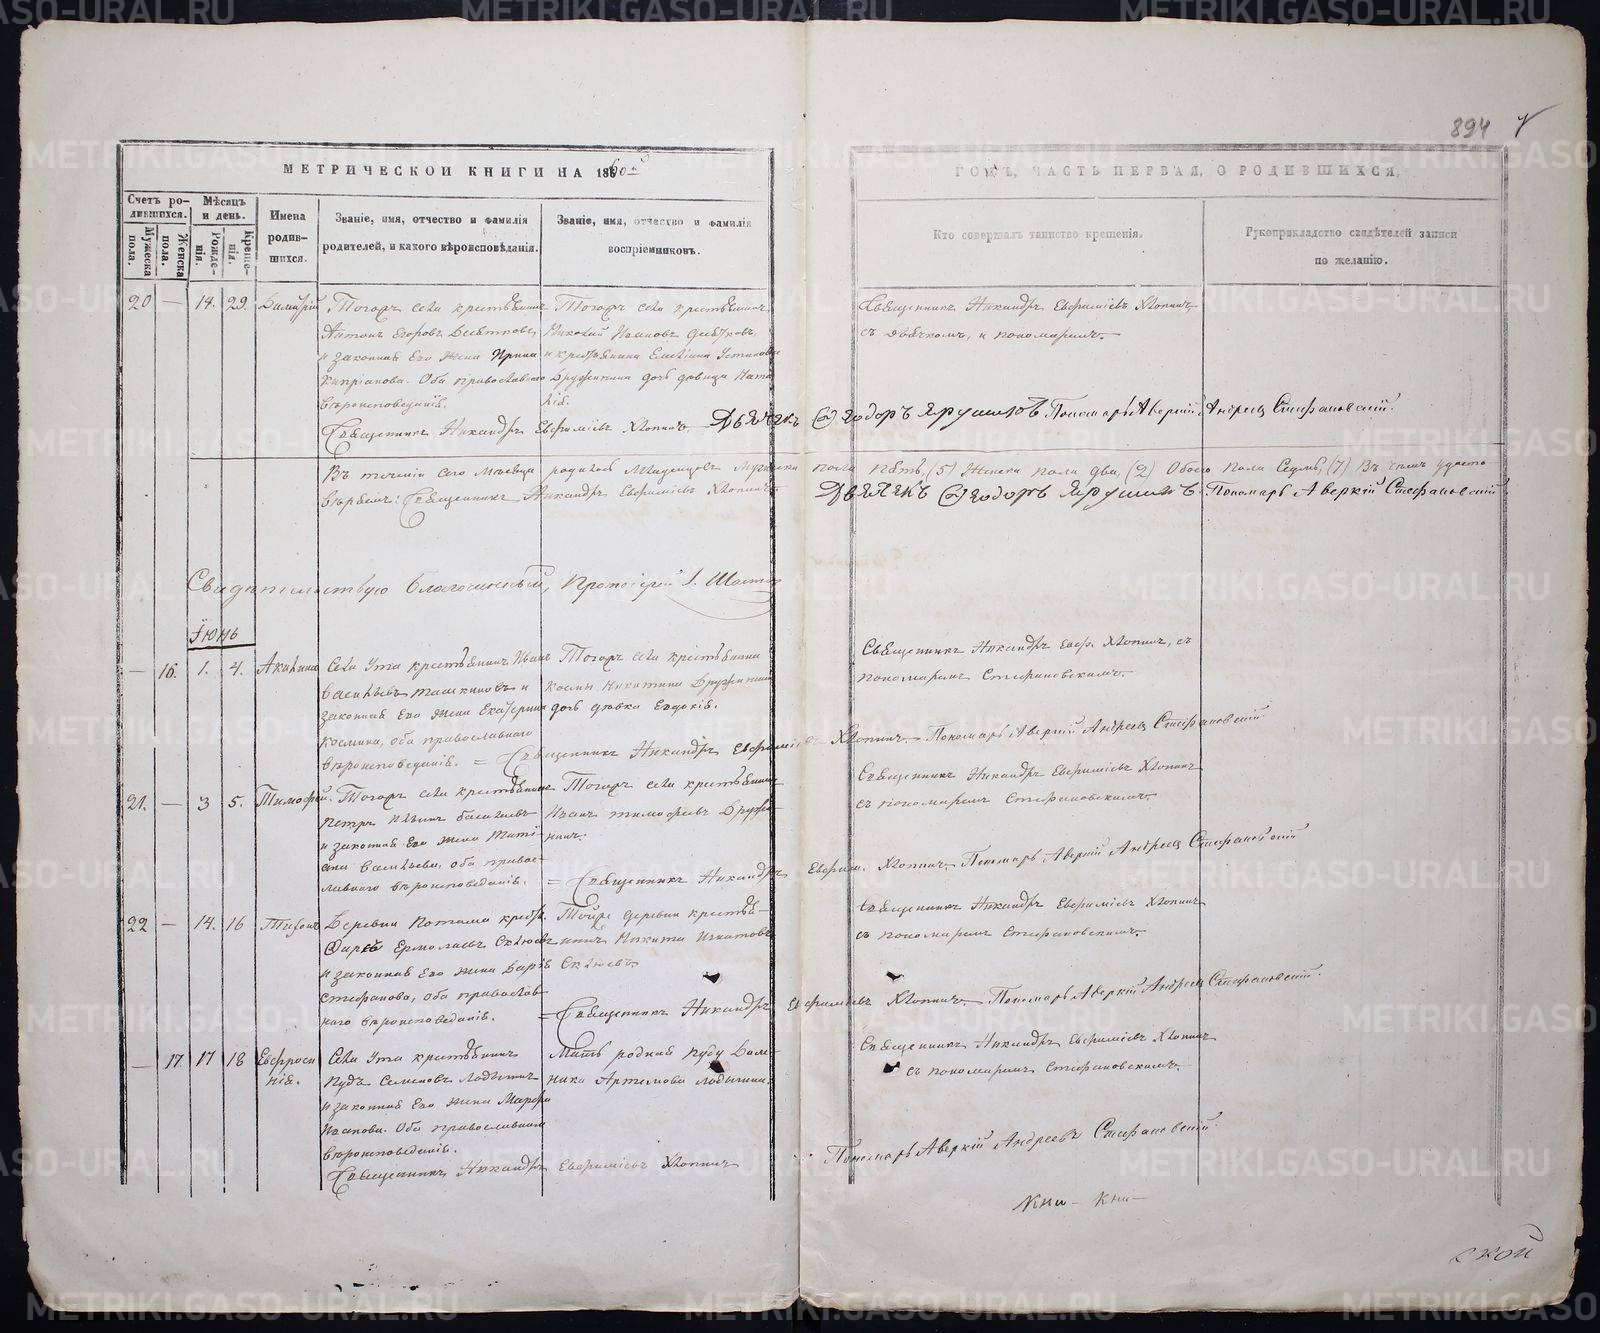 894
МЕТРИЧЕСКОЙ КНИГИ НА 1860й
ГОДЪ, ЧАСТЬ ПЕРВАЯ, О РОДИВШИХСЯ.
Счетъ родившихся.
Мужеска пола.
Женска пола.
Мѣсяцъ и день.
Рожденія.
Крещенія.
Имена родившихся.
Званіе, имя, отчество и фамилія
родителей, и какого вѣроисповѣданія.
Званіе, имя, отчество и фамилія
воспріемниковъ.
Кто совершалъ таинство крещенія.
Рукоприкладство свидѣтелей записи
по желанію.
20 — 14. 29. Димитрій
Тогожъ села крестьянинъ
Антонъ Егоровъ
и законная его жена Ирина
Кипріанова. Оба православнаго
вѣроисповеданія.
Тогожъ села крестьянинъ
Николай Ивановъ
и крестьянина Устинова
Дружинина дочь дѣвица Ната
лія.
Священникъ Никандръ Евфиміевъ Хлопинъ
съ дьячкомъ, и пономаремъ.
Священникъ Никандръ Евфиміевъ Хлопинъ. Дьячекъ Ѳеодоръ Ярушинъ Пономарь Аверкій Андреев Стефановскій.
Въ теченіи сего мѣсяца родилось младенцовъ мужеска пола пять, (5) Женска пола два, (2) Обоего пола Седмь, (7) Въ чемъ удосто
вѣряемъ: Священникъ Никандръ Евфиміевъ Хлопинъ Дьячекъ Ѳеодоръ Ярушинъ. Пономарь Аверкій Стефановскій
Свидѣтельствую благочинный, Протоіерей І.
Іюнь
— 16. 1. 4. Акилина
Села Ута крестьянинъ Иванъ
Васильевъ и
законная его жена Екатерина
Космина, оба православнаго
вѣроисповеданія.
Тогожъ села крестьянина
Космы Никитина Дружинина
дочь дѣвка Евдокія.
Священникъ Никандръ Евф. Хлопинъ, съ
пономаремъ Стефановскимъ.
= Священникъ Никандръ Евфиміевъ Хлопинъ. Пономарь Аверкій Андреев Стефановскій
21. — 3 5. Тимофей.
Тогожъ села крестьянинъ
Петръ Васильевъ
и законная его жена Тати
ана Васильева, оба правос
лавнаго вѣроисповеданія.
Тогожъ села крестьянинъ
Иванъ Тимофеевъ Дружи
нинъ.
Священникъ Никандръ Евфиміевъ Хлопинъ
съ пономаремъ Стефановскимъ.
= Священникъ Никандръ Евфим. Хлопинъ. Пономарь Аверкій Андреев Стефановскій
22 — 14. 16 Тихонъ
Деревни Потама крест.
Ермолаевъ
и законная его жена Дарья
Стефанова, оба православ
наго вѣроисповеданія.
Тойже деревни крестья-
нинъ Никита Игнатовъ
Священникъ Никандръ Евфиміевъ Хлопинъ
съ пономаремъ Стефановскимъ.
= Священникъ Никандръ Евфиміевъ Хлопинъ. Пономарь Аверкій Андреев Стефановскій.
— 17. 17 18 Евфроси
нія.
Села Ута крестьянинъ
Пудъ Семеновъ Лодыгинъ
и законная его жена Марфа
Иванова. Оба православнаго
вѣроисповеданія.
Мать родная Пуду Дом
ника Артемова Лодыгина.
Священникъ Никандръ Евфиміевъ Хлопинъ
съ пономаремъ Стефановскимъ.
Священникъ Никандръ Евфиміевъ Хлопинъ Пономарь Аверкій Андреевъ Стефановскій.
Кни- Кни-
ской
METRIKI.GASO-URAL.RU